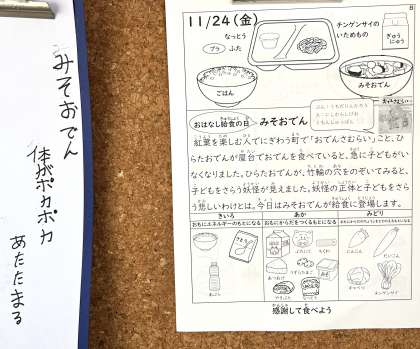 みそおでん
体がポカポカ
あたたまる
11/24(金)
なっとう
プラ
ふた
チンゲンサイの
いためもの
ぎゅう
にゅう
ごはん
みそおでん
おはなし給食の日
みそおでん
紅葉を楽しむ人でにぎわう町で「おでんさむらい」こと、ひ
らたおでんが屋台でおでんを食べていると、急に子どもがい
なくなりました。ひらたおでんが、竹輪の穴をのぞいてみると、
子どもをさらう妖怪が見えました。妖怪の正体と子どもをさ
らう悲しいわけとは。今日はみそおでんが給食に登場します。
きいろ
あか
みどり
おもにエネルギーのもとになる
おもにからだをつくるもとになる
にんじん
だいこん
キャベツ
チンゲンサイ
なっとう
感謝して食べよう